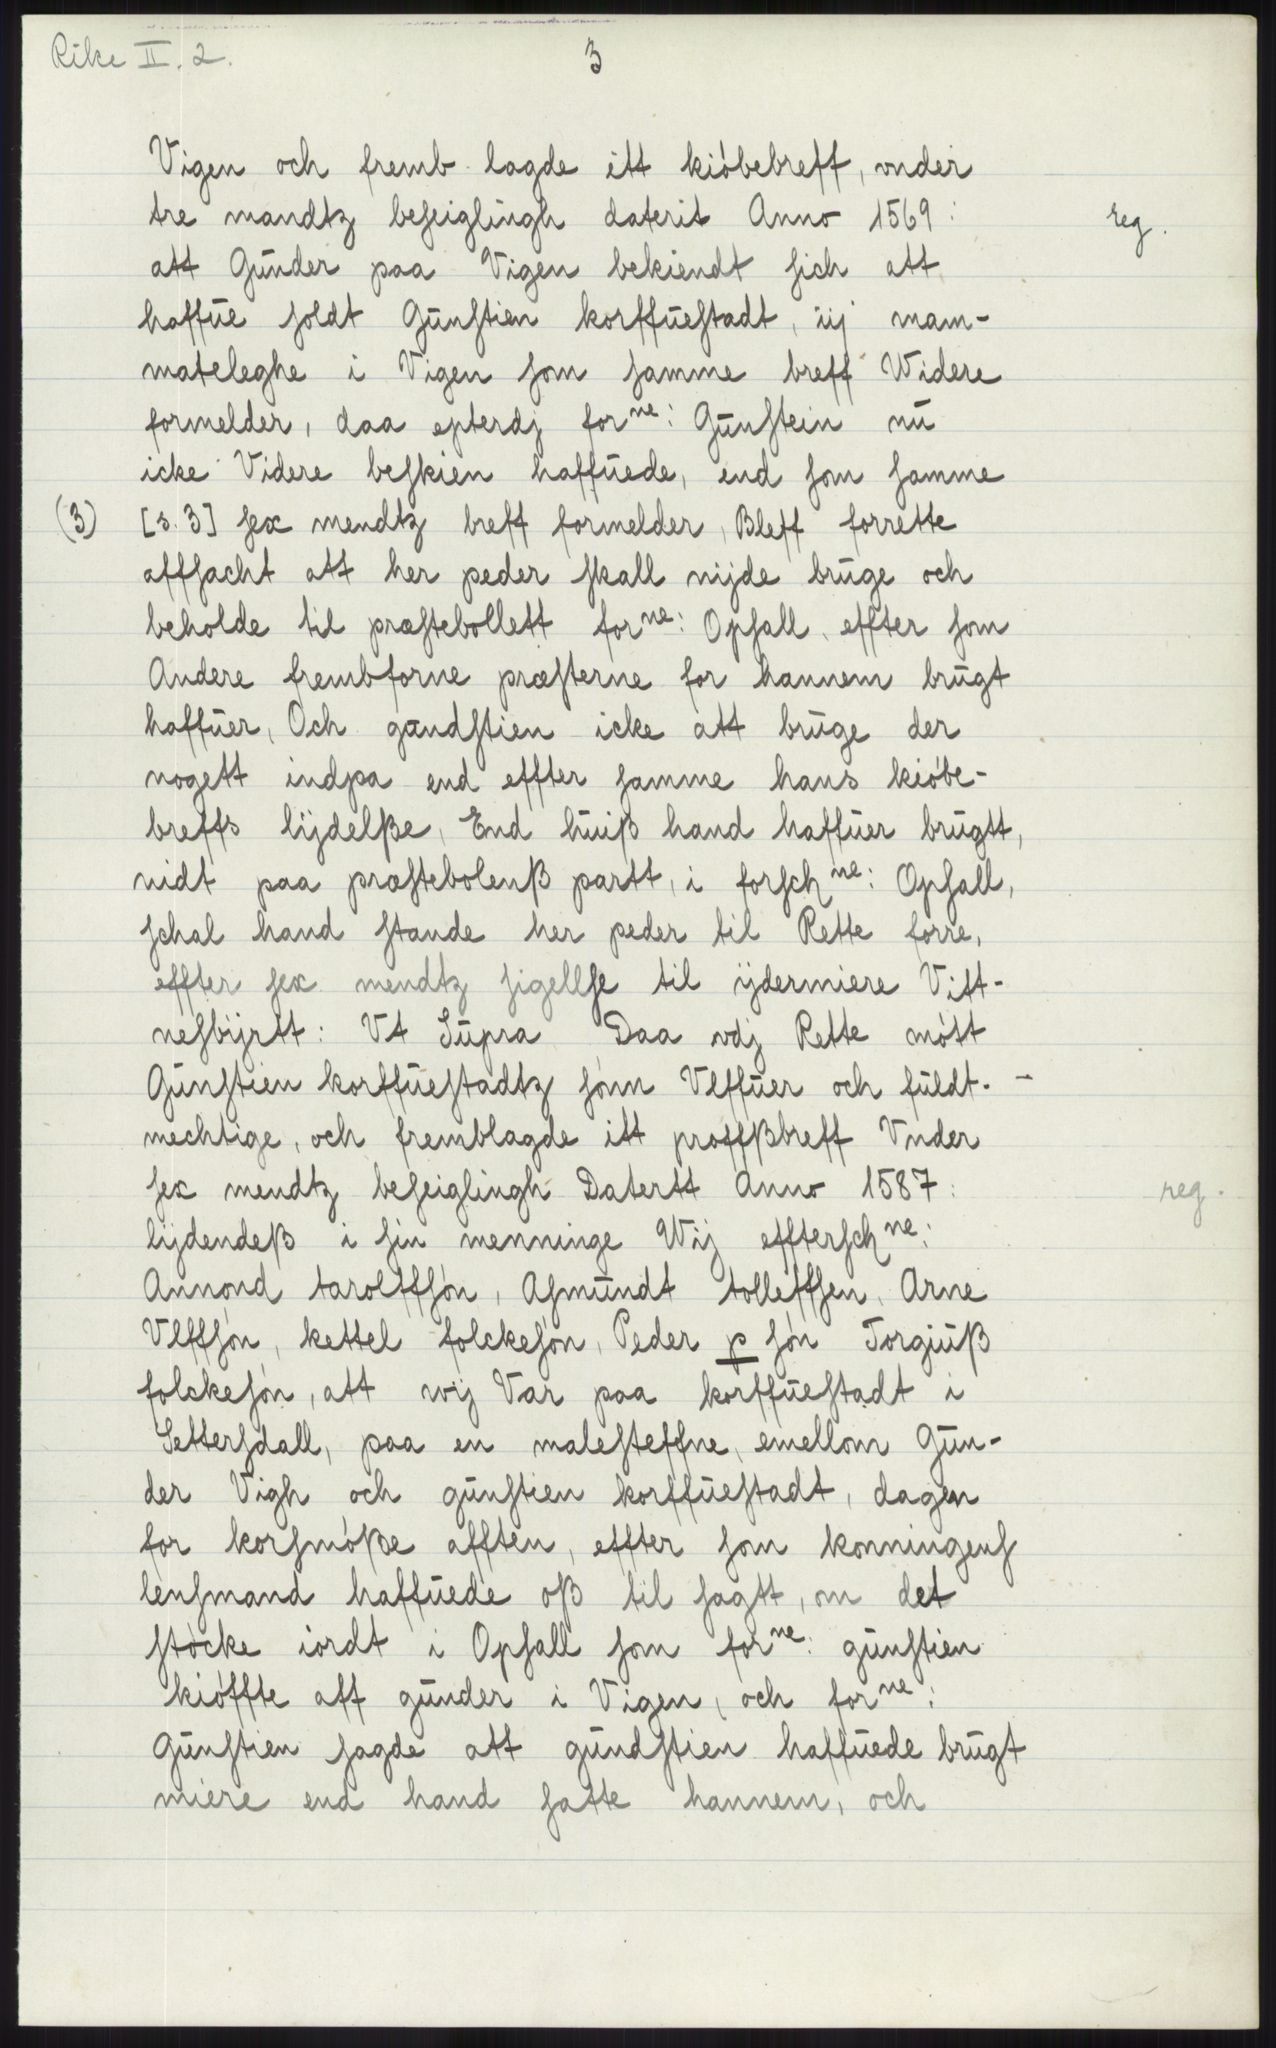 Rike II. 2.
3
Vigen och fremb lagde itt kióbebreff, vnder
tre mandtz beseiglingh daterit Anno 1569:
reg.
att Gúnder paa Vigen bekiendt sich att
haffúe soldt Gúnstien korffúestadt, iij mam-
mateleghe i Vigen som samme breff Widere
formelder, daa epterdj forne: Gúnstein nú
icke Videre beskien haffúede, end som samme
(3) [s. 3] sex mendtz breff formelder, Bleff forrette
affsacht att her peder skall nijde brúge och
beholde til præstebollett forne: Opsall, effter som
Andere frembforne præsterne for hannem brúgt
haffúer, Och gúndstien icke att brúge der
nogett indpa end effter samme hans kióbe-
breffs lijdelße, End húiß hand haffúer brúgtt,
vidt paa præstebolenß partt, i forschne: Opsall,
schal hand stande her peder til Rette forre,
effter sex mendtz sigellse til ijdermiere Vitt-
nesbijrtt: Vt Súpra Daa vdj Rette mótt
Gúnstien korffúestadtz sónn Vlffúer och fúldt-
mechtige, och fremblagde itt proffßbreff Vnder
sex mendtz beseiglingh Datertt Anno 1587:
reg.
lijdendeß i sin menninge Wij efftersch ne:
Annond taroltfsón, Asmúndt tolleffsen, Arne
Vlffsón, kettel folckesón, Peder p són Torgiúß
folckesón, att wij Var paa korffúestadt i
Settersdall, paa en malesteffne, emellom Gún-
der Vigh och gúnstien korffúestadt, dagen
for korsmóße afften, effter som konningens
lensmand haffúede oß til sagtt, om det
stócke iordt i Opsall som forne: gúnstien
kióffte aff gúnder i Vigen, och forne:
Gúnstien sagde att gúndstien haffúede brúgt
miere end hand satte hannem, och